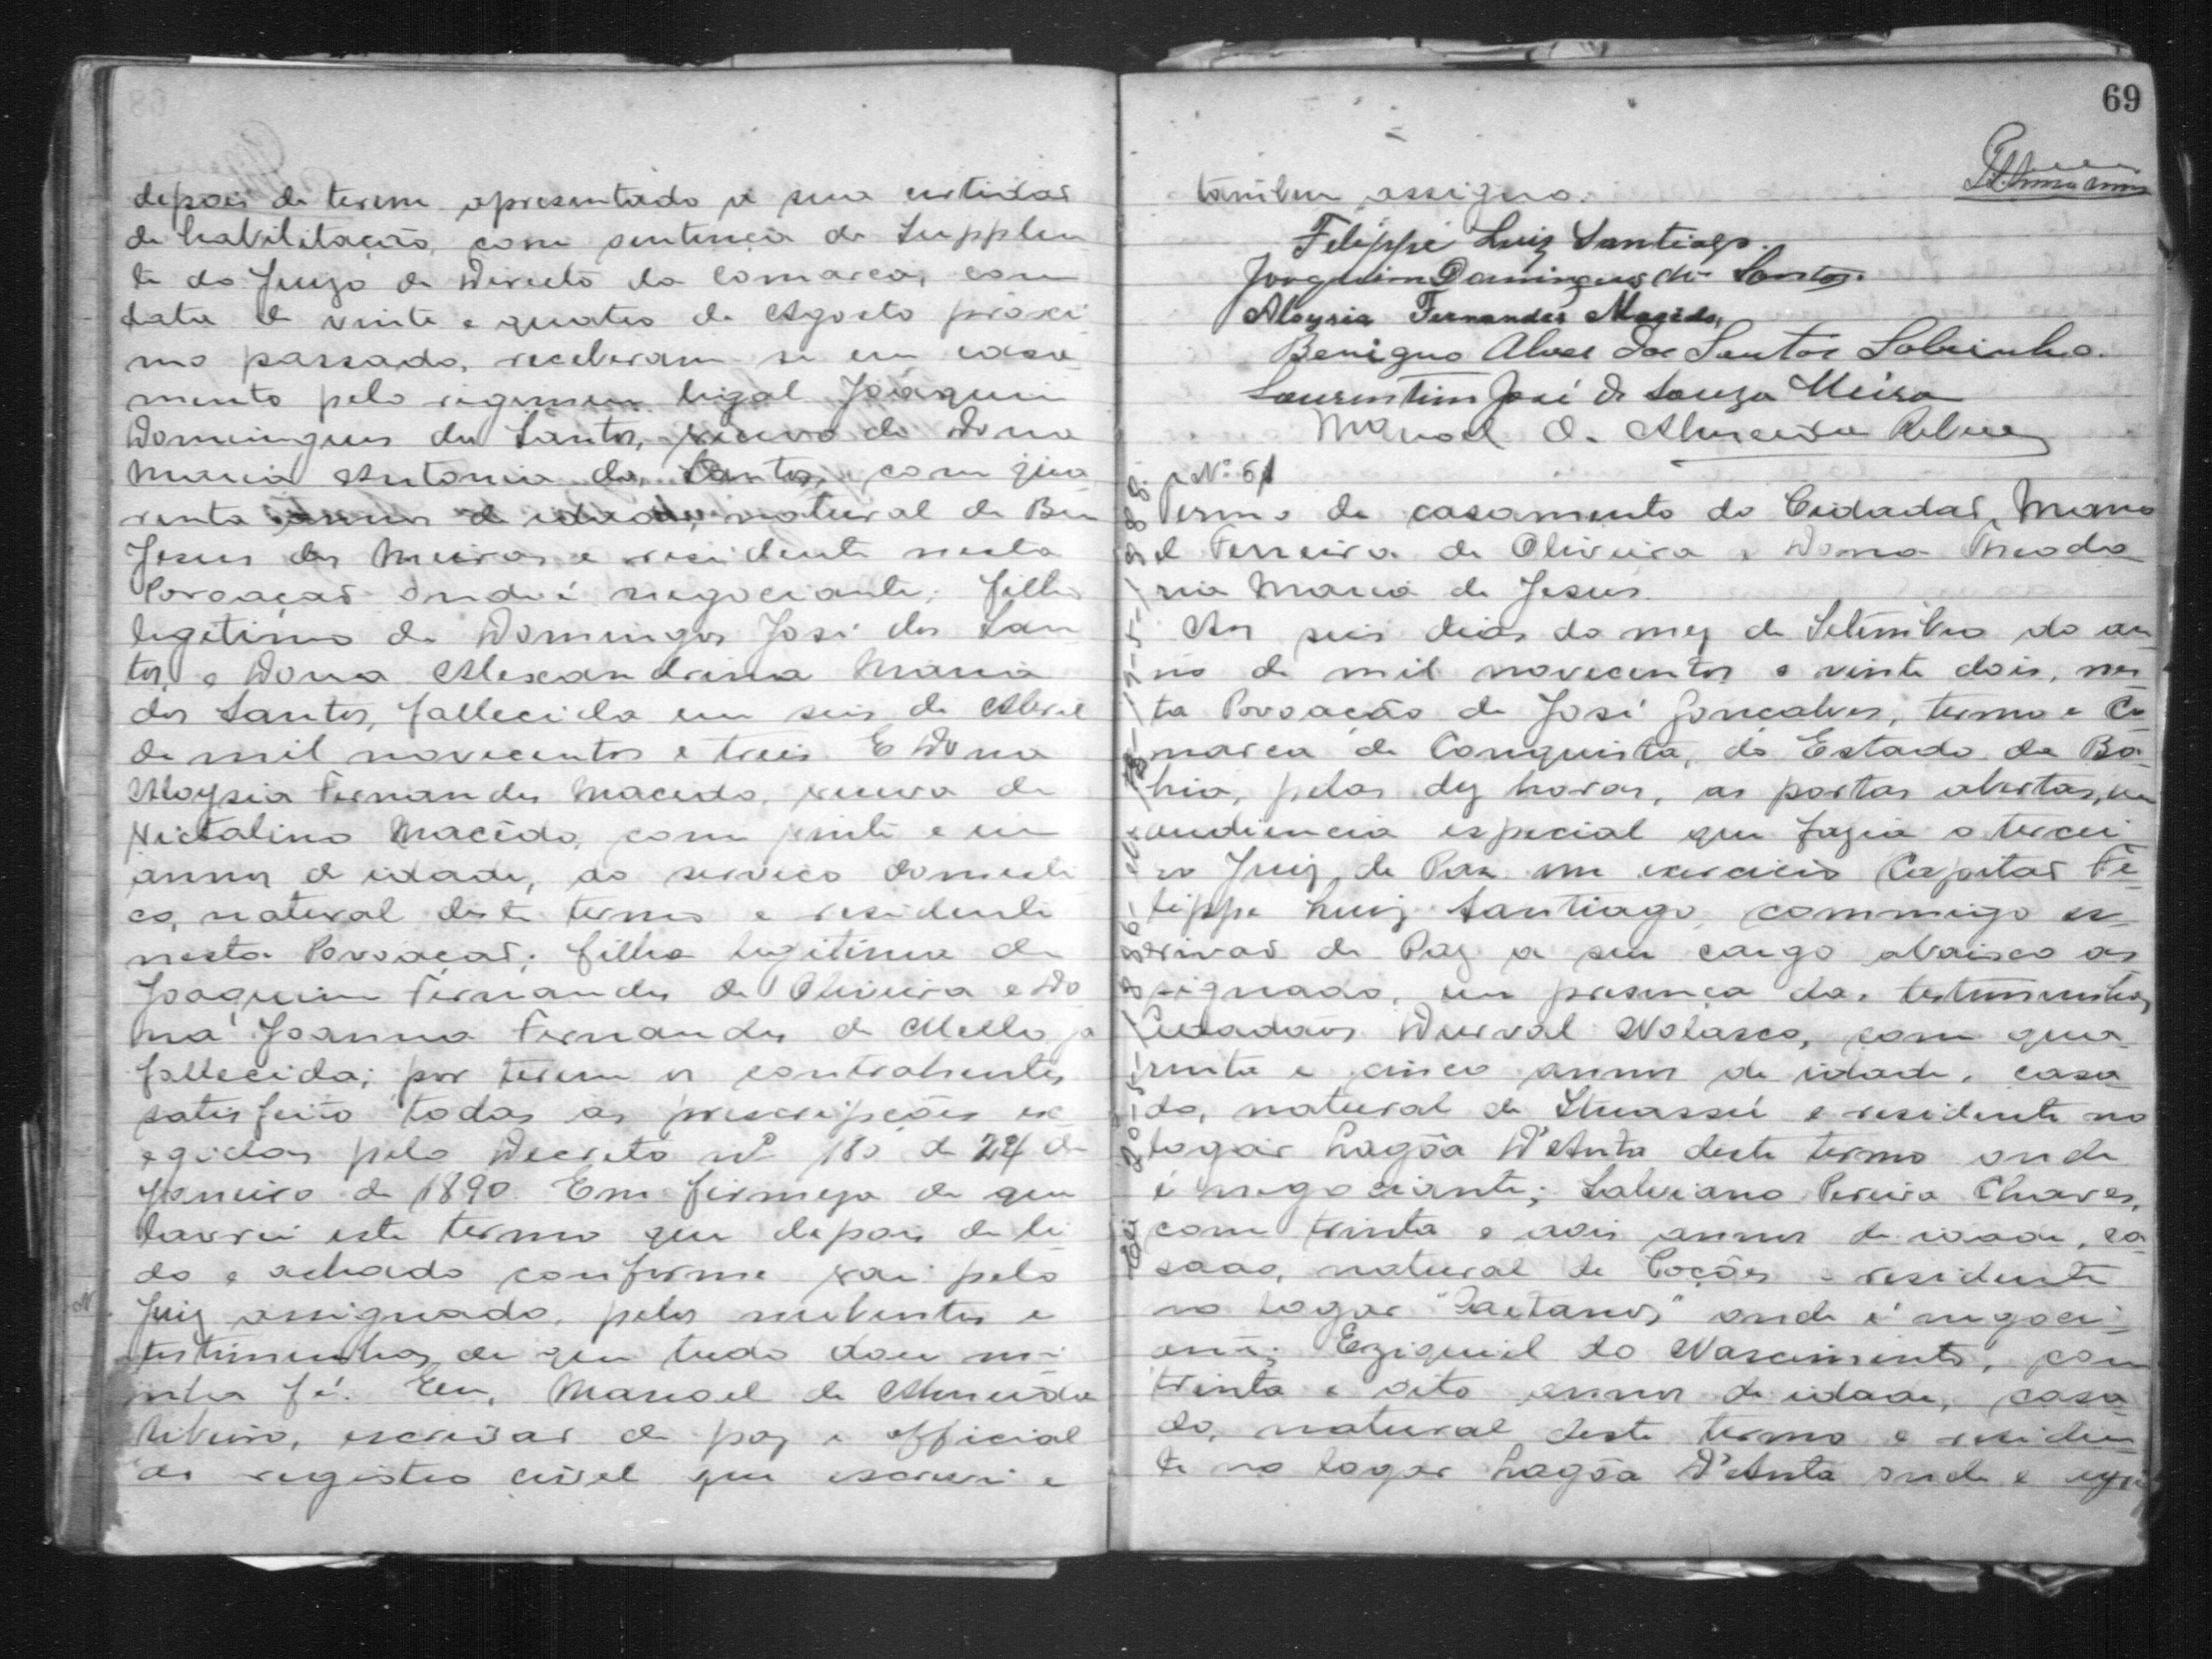 depois de terem apresentado a sua certidão
de habilitação, com sentença do Supplen
te do Juizo de Direito da Comarca, com
data de vinte e quatro de Agosto proxi
mo passado, receberam se em casa
mento pelo regimen legal Joaquim
Domingues dos Santos, viuvo de Dona
Maria Antonia dos Santos, com qua
renta annos de idade, natural de Bom
Jesus dos Meiras e residente nesta
Povoação onde é negociante; filho
legitimo de Domingos José dos San
tos e Dona Alexandrina Maria
dos Santos, fallecida em seis de Abril
de mil novecentos e treis. E Dona
Aloysia Fernandes Macedo, viuva de
Victalino Macêdo, com vinte e um
annos de idade, do serviço domesti
co, natural deste termo e residente
nesta Povoação; filha legitima de
Joaquim Fernandes de Oliveira e Do
na Joanna Fernandes de Mello já
fallecida; por terem os contrahentes
satisfeito todas as prescripções ex
egidas pelo Decreto nº 180 de 24 de
Janeiro de 1890. Em firmeza do que
lavrei este termo que depois de li
do e achado conforme vai pelo
Juiz assignado, pelos nubentes e
testimunhas, de que tudo dou mi
nha fé. Eu, Manoel de Almeida
Ribeiro, escrivão de paz e official
do registro civel que escrevi e
69
tambem assigno.
Felippe Luiz Santiago.
Joaquim Domingues dos Santos.
Aloysia Fernandes Macêdo,
Benigno Alves dos Santos Sobrinho.
Laurentim José de Souza Meira
Manoel d. Almeida Ribeiro
Nº 61
Termo de casamento do Cidadão Mano
el Ferreira de Oliveira e Dona Theodo
ria Maria de Jesus.
Aos seis dias do mez de Setembro do an
no de mil novecentos e vinte dois, nes
ta Povoação de José Gonçalves, termo e Co
marca de Conquista, do Estado da Ba
hia, pelas dez horas, as portas abertas, em
audiencia especial que fazia o tercei
ro Juiz de Paz em exercicio Capitão Fe
lippe Luiz Santiago, commigo es
crivão de Paz a seu cargo abaixo as
signado, em presença das testimunhas
Cidadãos Durval Nolasco, com qua
renta e cinco annos de idade, casa
do, natural de Ituassú e residente no
logar Lagôa D'Anta deste termo onde
é negociante; Salviano Pereira Chaves,
com trinta e dois annos de idade, ca
sado, natural de Poções e residente
no logar "Caetanos" onde é negoci
ante; Eziquiel do Nascimento, com
trinta e oito annos de idade, casa
do, natural deste termo e residen
te no logar Lagôa D'Anta onde é